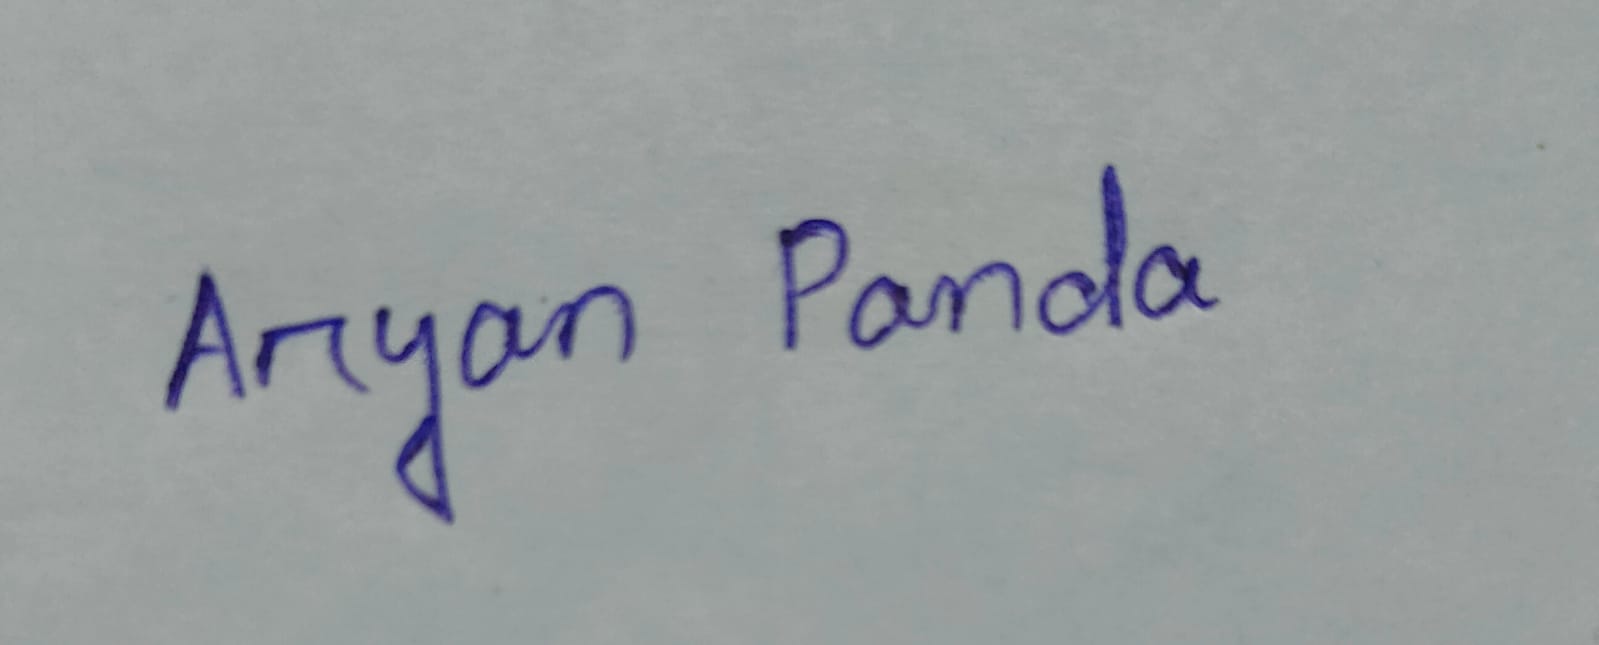 Aryan Panda